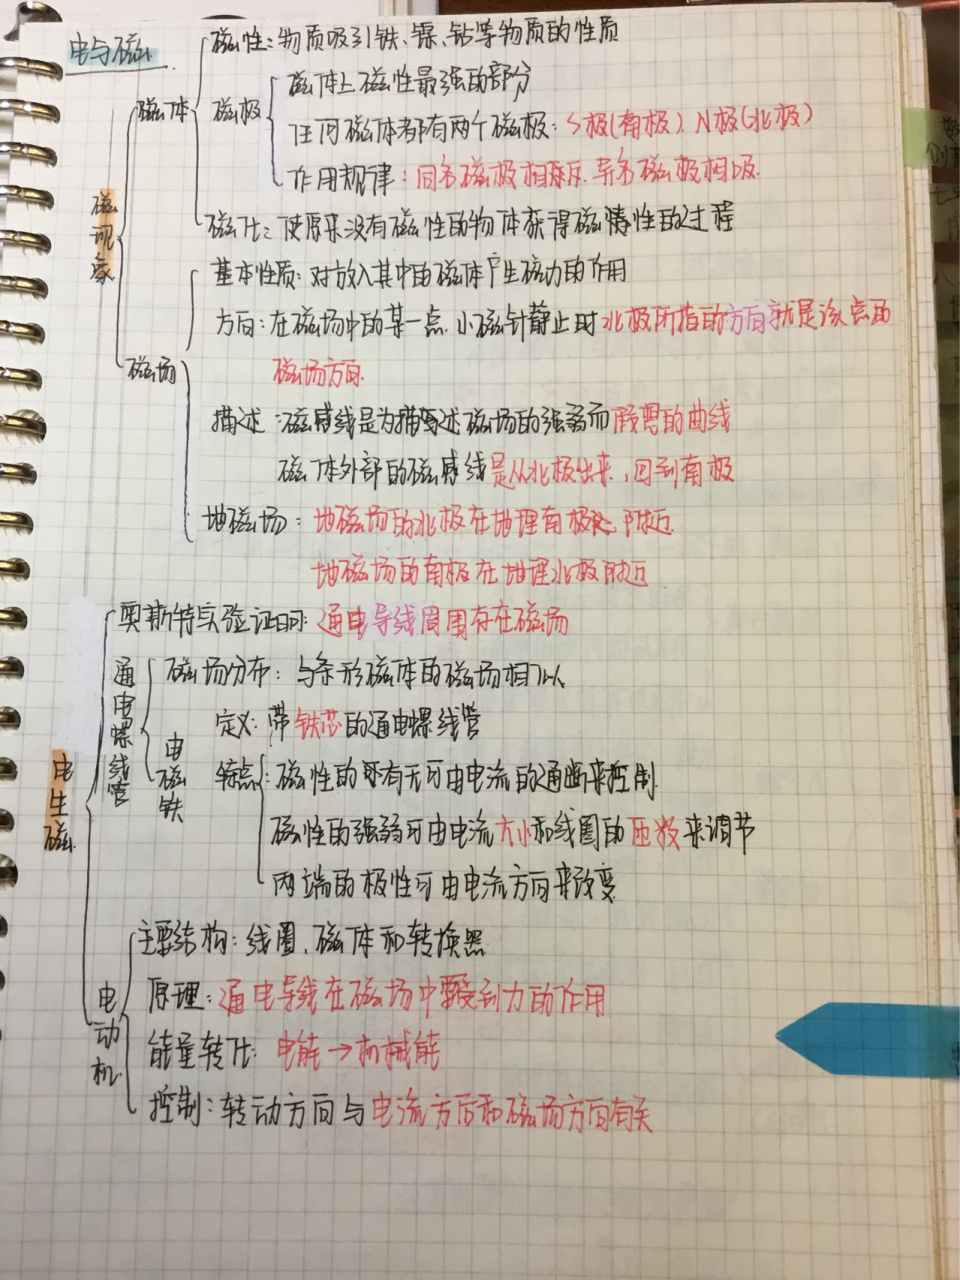 电与磁
磁现象
磁体
磁性:物质吸引铁、镍、钴等物质的性质
磁极
磁体上磁性最强的部分
任何磁体都有两个磁极:S极(南极)、N极(北极)
作用规律:同名磁极相斥.异名磁极相吸.
磁化:使原来没有磁性的物体获得磁性的过程
磁场
基本性质:对放入其中的磁体产生磁力的作用
方向:在磁场中的某一点.小磁针静止时北极所指的方向就是该点的
磁场方向.
描述:磁感线是为描述磁场的强弱而假想的曲线
磁体外部的磁感线是从北极出来,回到南极
地磁场:地磁场的北极在地理南极附近.
地磁场的南极在地理北极附近
电生磁
奥斯特实验证明:通电导线周围存在磁场
通电螺线管
磁场分布:与条形磁体的磁场相似
电磁铁
定义:带铁芯的通电螺线管
特点:磁性的有无可由电流的通断来控制.
磁性的强弱可由电流大小和线圈的匝数来调节
两端的极性可由电流方向来改变.
电动机
主要结构:线圈、磁体和转换器
原理:通电导线在磁场中要受到力的作用
能量转化:电能→机械能
控制:转动方向与电流方向和磁场方向有关